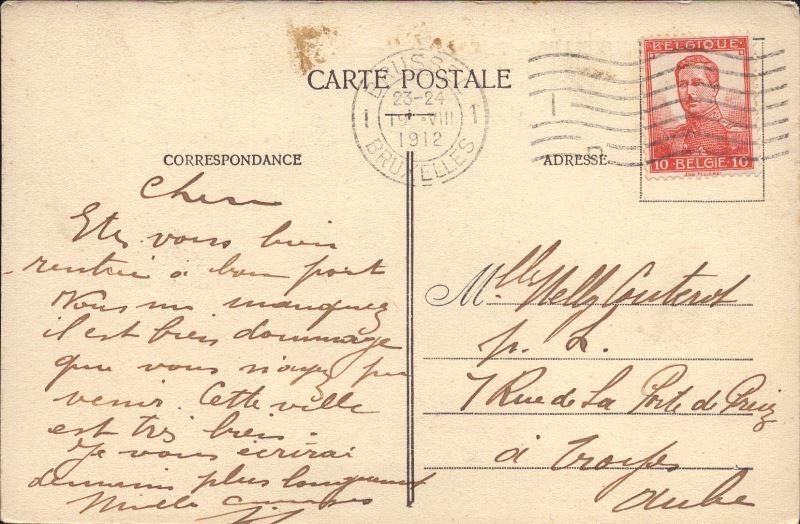 CARTE POSTALE
BRUSSEL
23-24
1 19 -VIII 1
1912
BRUXELLES
BELGIQUE
10 BELGIË 10
CORRESPONDANCE
ADRESSE
Etes vous bien
rentrée à bon port
Vous me manquez
il est bien dommage
que vous n'ayez pu
venir. Cette ville
est très bien.
Je vous écrirai
demain plus longuement
Mille
Mlle Nelly Couterot
p. L.
7 Rue de La Porte de
à Troyes
Aube